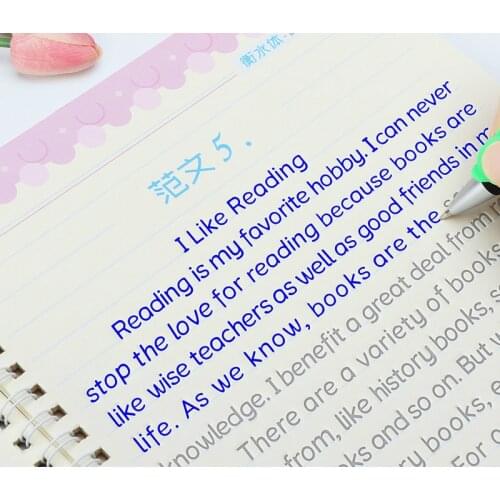 衡水体
范文5.
I Like Reading
Reading is my favorite hobby. I can never
stop the love for reading because books are
like wise teachers as well as good friends in
life. As we know, books are the
knowledge. I benefit a great deal from
There are a variety of books
from, like history books,
books and so on. But
books,
For